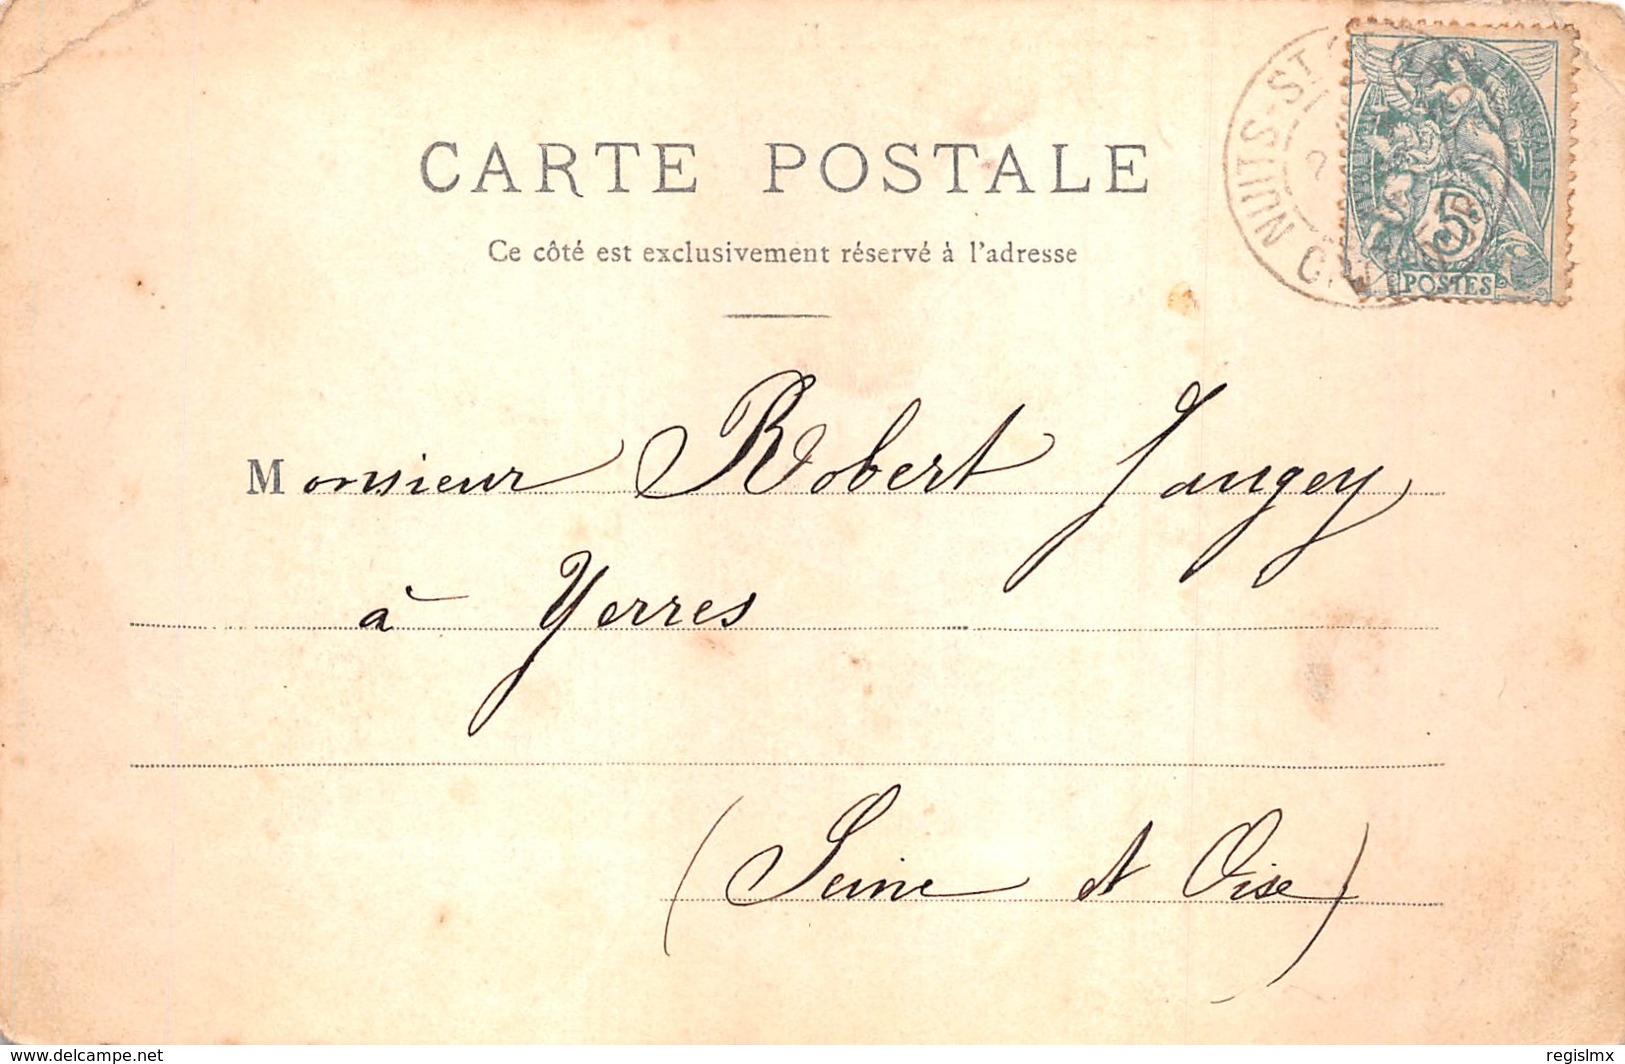 CARTE POSTALE
Ce côté est exclusivement réservé à l'adresse
NUITS-ST
5
POSTES
Monsieur Robert Jaugey
à Yerres
(Seine et Oise)
www.delcampe.net
regislmx